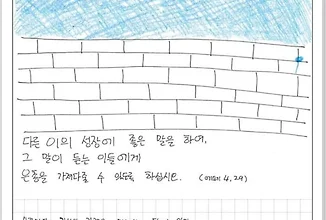 다른 이의 성장에 좋은 말을 하여,
그 말이 듣는 이들에게
은총을 가져다줄 수 있도록 하십시오. (에페 4, 29)